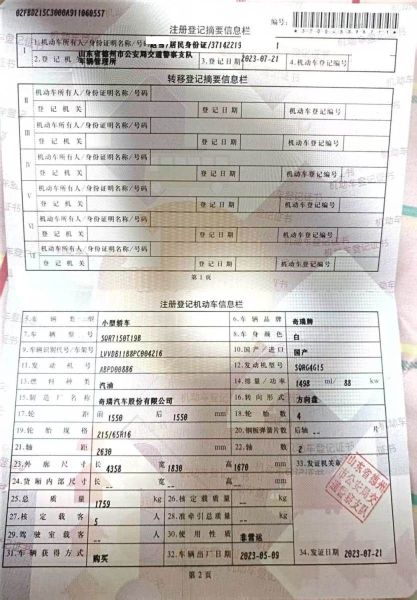 02FBD215C3000A911060557
注册登记摘要信息栏
编号:
1.机动车所有人/身份证明名称/号码 /居民身份证/37142219
2.登记机关 山东省德州市公安局交通警察支队车辆管理所 3.登记日期 2023-07-21 4.机动车登记编号
转移登记摘要信息栏
II 机动车所有人/身份证明名称/号码
登记机关 登记日期 机动车登记编号
III 机动车所有人/身份证明名称/号码
登记机关 登记日期 机动车登记编号
IV 机动车所有人/身份证明名称/号码
登记机关 登记日期 机动车登记编号
V 机动车所有人/身份证明名称/号码
登记机关 登记日期 机动车登记编号
VI 机动车所有人/身份证明名称/号码
登记机关 登记日期 机动车登记编号
VII 机动车所有人/身份证明名称/号码
登记机关 登记日期 机动车登记编号
第1页
注册登记机动车信息栏
5.车辆类型 小型轿车 6.车辆品牌 奇瑞牌
7.车辆型号 SQR7150T19B 8.车身颜色 白
9.车辆识别代号/车架号 LVVDB11B8PC004216 10.国产/进口 国产
11.发动机号 ABPD00886 12.发动机型号 SQRG4G15
13.燃料种类 汽油 14.排量/功率 1498 ml/ 88 kw
15.制造厂名称 奇瑞汽车股份有限公司 16.转向形式 方向盘
17.轮距 前 1550 后 1550 mm 18.轮胎数 4
19.轮胎规格 215/65R16 20.钢板弹簧片数 后轴 片
21.轴距 2630 mm 22.轴数 2
23.外廓尺寸 长 4358 宽 1830 高 1670 mm 33.发证机关章
24.货厢内部尺寸 长 宽 高 mm
25.总质量 1759 kg 26.核定载质量 kg
27.核定载客 5 人 28.准牵引总质量 kg
29.驾驶室载客 人 30.使用性质 非营运
31.车辆获得方式 购买 32.车辆出厂日期 2023-05-09 34.发证日期 2023-07-21
第2页